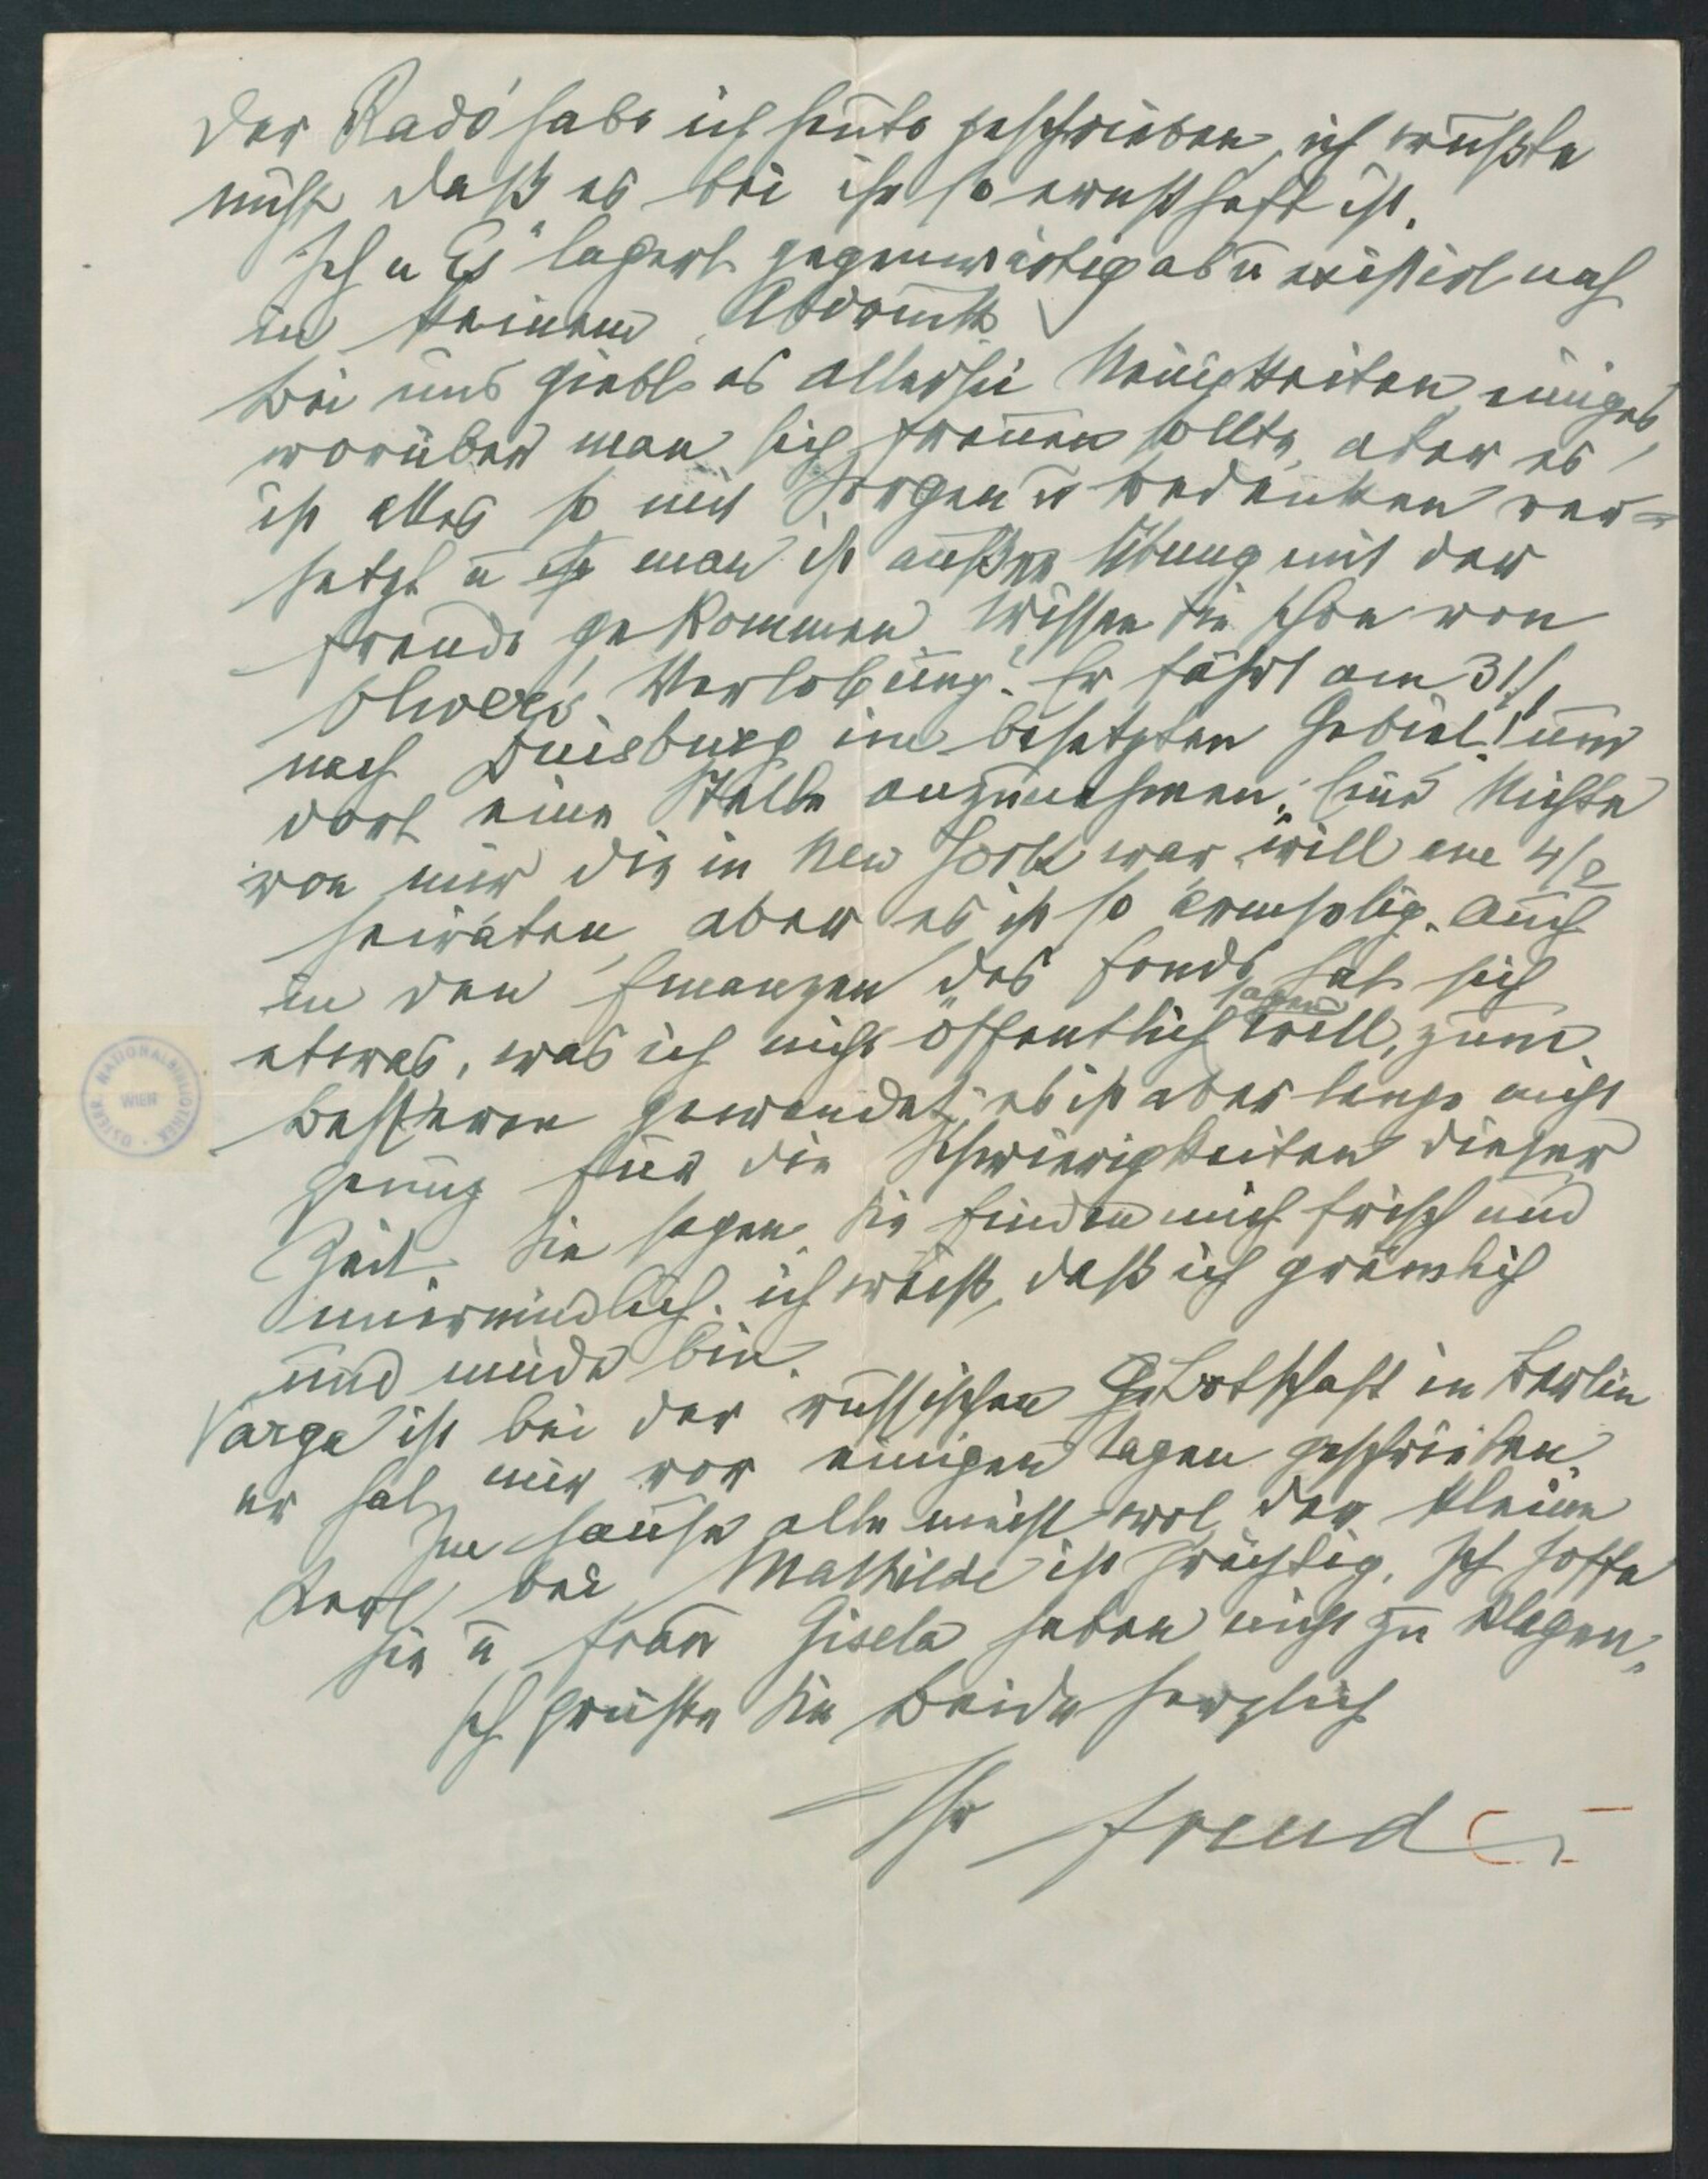 Der Radó habe ich heute geschrieben, ich wußte
nicht daß es bei ihr so ernsthaft ist.
Ich u Es" lagert gegenwärtig ab u existirt noch
in keinem Abdruck
Bei uns giebt es allerlei Neuigkeiten, einiges,
worüber man sich freuen sollte, aber es
ist alles so mit Sorgen u Bedenken ver=
setzt u man ist außer Übung mit der
Freude gekommen. Wissen Sie schon von
Olivers Verlobung? Er fährt am 31/1
nach Duisburg im besetzten Gebiet! um
dort eine Stelle anzunehmen. Eine Nichte
von mir die in New York war, will am 4/2
heiraten, aber es ist so armselig. Auch
in den Finanzen des Fonds hat sich
etwas, was ich nicht öffentlich sagen will, zum
Besseren gewendet, es ist aber lange nicht
genug für die Schwierigkeiten dieser
Zeit. Sie sagen, Sie finden mich frisch und
unermüdlich. ich weiß, daß ich grämlich
und müde bin.
Varga ist bei der russischen Botschaft in Berlin
er hat mir vor einigen Tagen geschrieben.
Im Hause alle meist wol, der kleine
Kerl bei Mathilde ist prächtig. Ich hoffe
Sie u Frau Gisela haben nicht zu klagen.
Ich grüße Sie beide herzlich
Ihr Freud
ÖSTERR. NATIONALBIBLIOTHEK
WIEN